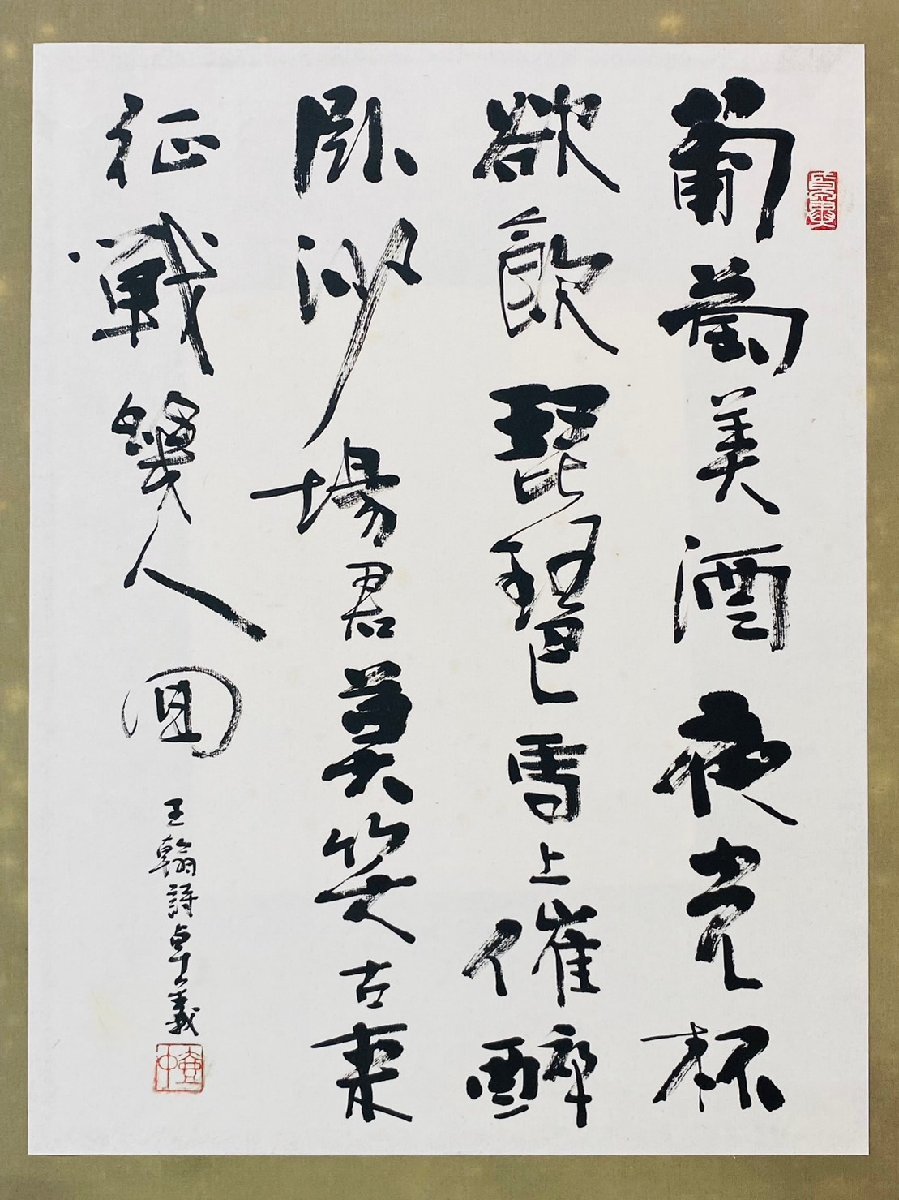 葡萄美酒夜光杯
欲飲琵琶馬上催醉
臥沙場君莫笑古來
征戰幾人回
王翰詩卓義